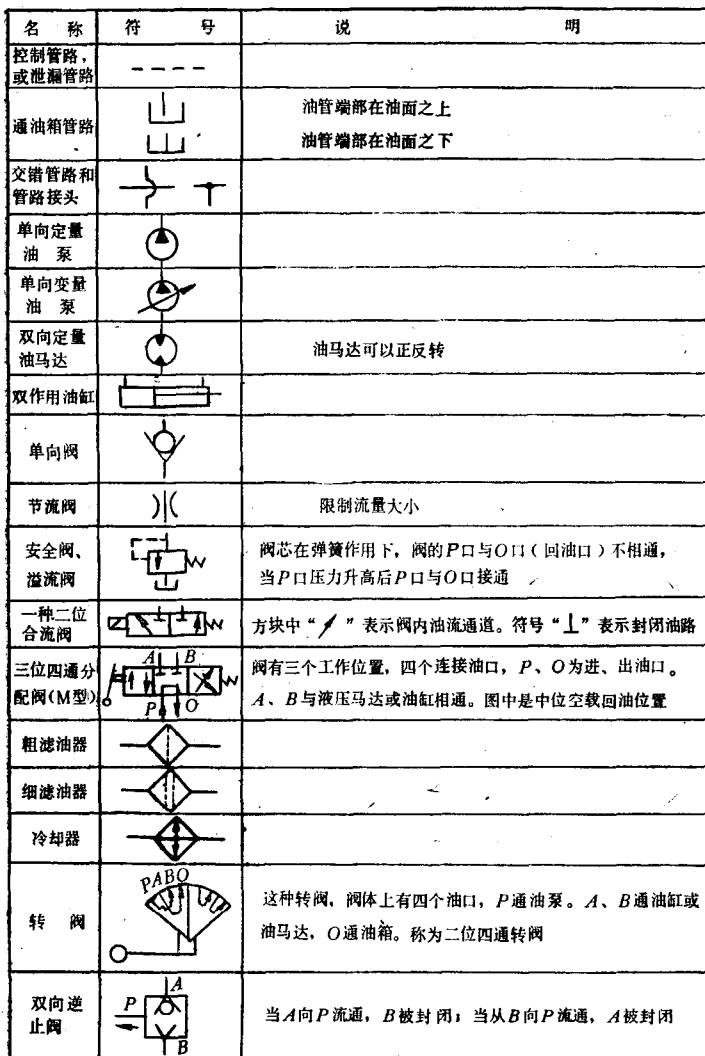 名 称 符 号 说 明
控制管路，
或泄漏管路
通油箱管路
油管端部在油面之上
油管端部在油面之下
交错管路和
管路接头
单向定量
油 泵
单向变量
油 泵
双向定量
油马达
油马达可以正反转
双作用油缸
单向阀
节流阀
限制流量大小
安全阀、
溢流阀
阀芯在弹簧作用下，阀的P口与O口（回油口）不相通，
当P口压力升高后P口与O口接通
一种二位
合流阀
方块中“ ”表示阀内油流通道。符号“⊥”表示封闭油路
三位四通分
配阀(M型)
A B
P O
阀有三个工作位置，四个连接油口，P、O为进、出油口。
A、B与液压马达或油缸相通。图中是中位空载回油位置
粗滤油器
细滤油器
冷却器
转 阀
PABO
这种转阀，阀体上有四个油口，P通油泵。A、B通油缸或
油马达，O通油箱。称为二位四通转阀
双向逆
止阀
A
P
B
当A向P流通，B被封闭；当从B向P流通，A被封闭